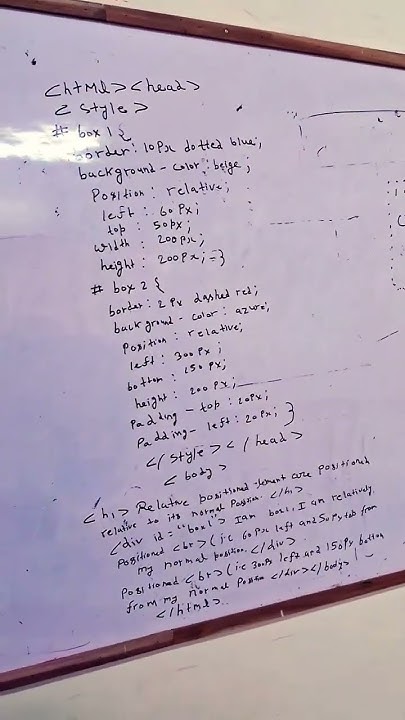 <html><head>
<style>
# box1{
border: 10px dotted blue;
background-color: beige;
Position: relative;
left: 60Px;
top: 50px;
width: 200px;
height: 200Px;}
# box2{
border: 2 Px dashed red;
background-color: azure;
Position: relative;
left: 300Px;
bottom: 150 px;
height: 200 px;
Padding-top: 20px;
Padding-left: 20px; }
</style></head>
<body>
<h1> Relative positioned element are positioned
relative to its normal position. </h>
</div id = "box1"> I an box1, I an relatively
Positioned <br> (i.e 60px left and 50Py tab from
my normal position. </div>
Positioned <br> (i.e 300py left and 150py bottom
from my normal Position </div></body>
</html>